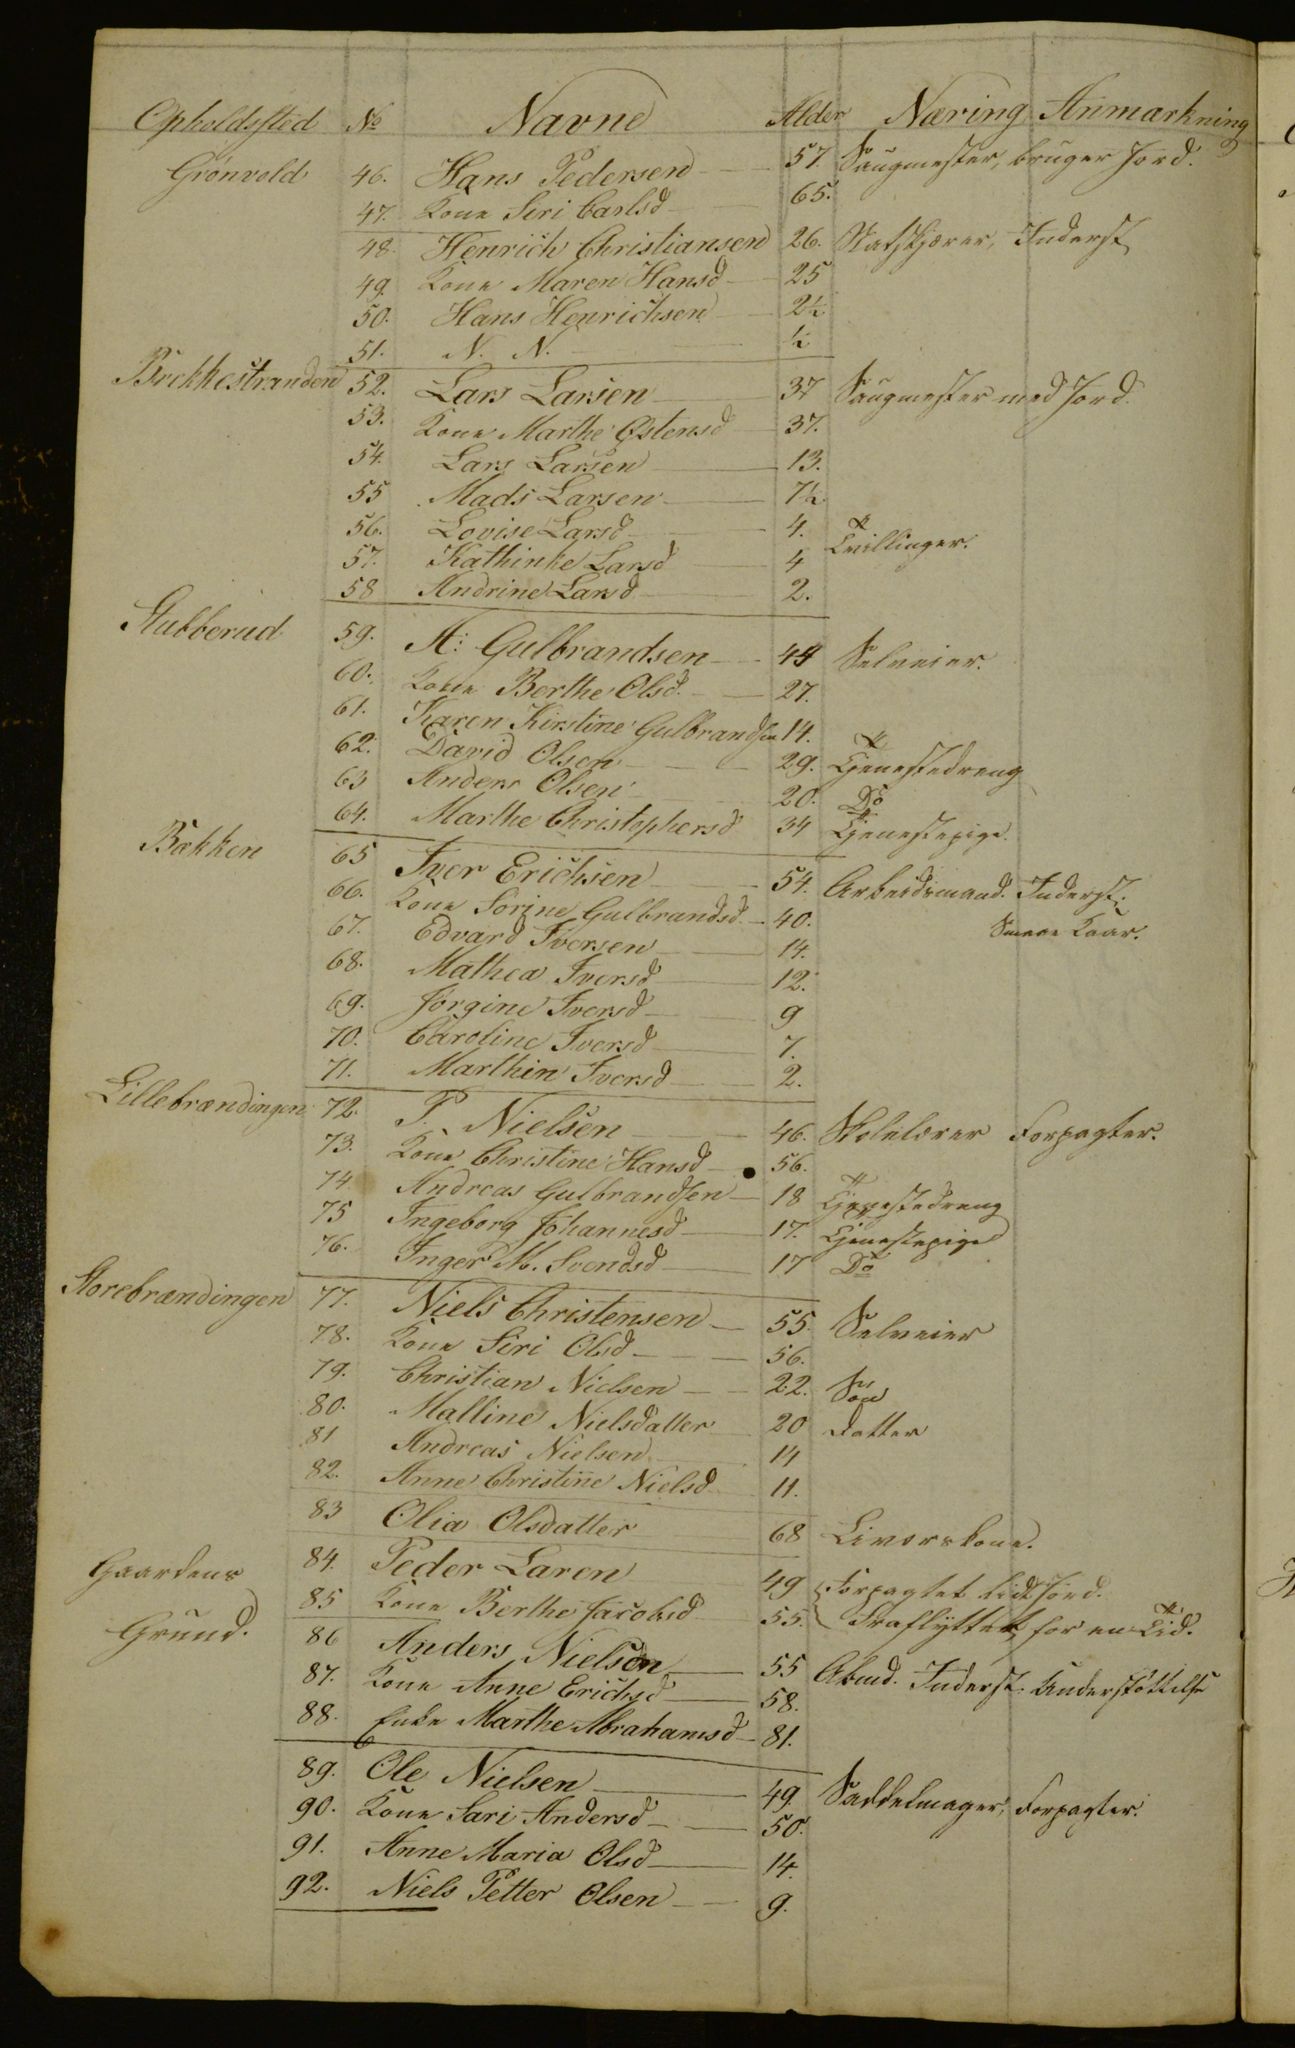 Opholdssted No Navne Alder Næring Anmærkning
Grønvold 46. Hans Pedersen 57. Saugmester, bruger Jord.
47. Kone Siri Carlsd 65.
48. Henrich Christiansen 26. Inderst
49. Kone Maren Hansd 25
50. Hans Henrichsen 2½
51. N. N. ½
Brekkestranden 52. Lars Larsen 37 Saugmester med Jord.
53. Kone Marthe Østensd 37.
54. Lars Larsen 13.
55 Mads Larsen 7½
56. Lovise Larsd 4. Tvillinger.
57. Kathinke Larsd 4
58 Andrine Larsd 2.
Stubberud 59. A: Gulbrandsen 44 Selveier.
60. Kone Berthe Olsd. 27.
61. Karen Kirstine Gulbrandsen 14.
62. David Olsen 29. Tjenestedreng
63 Anders Olsen 20. Do
64. Marthe Christophersd 34 Tjenestepige.
Bakken 65 Iver Erichsen 54. Arbeidsmand. Inderst.
66. Kone Sorine Gulbrandsd. 40. Smaae Kaar.
67. Edvard Iversen 14.
68. Mathea Iversd 12.
69. Jørgine Iversd 9
70. Caroline Iversd 7.
71. Marthin Iversd 2.
Lillebrændingen 72. P. Nielsen 46. Skolelærer Forpagter.
73. Kone Christine Hansd 56.
74 Andreas Gulbrandsen 18 Tjenestedreng
75 Ingeborg Johannesd 17. Tjenestepige
76. Inger M. Svendsd 17 Do
Storebrændingen 77. Niels Christensen 55. Selveier
78. Kone Siri Olsd 56.
79. Christian Nielsen 22. Søn
80. Malline Nielsdatter 20 Datter
81 Andreas Nielsen 14
82. Anne Christine Nielsd 11.
83 Olia Olsdatter 68 Livørskone.
Gaardens 84. Peder Laren 49 Forpagtet lidt Jord.
85 Kone Berthe Jacobsd 55. Fraflyttet for en Tid.
Grund. 86 Anders Nielsen 55 Abmd. Inderst. Understøttelse
87. Kone Anne Erichsd 58.
88. Enke Marthe Abrahamsd 81.
89. Ole Nielsen 49. Saddelmager, Forpagter.
90. Kone Sari Andersd 50.
91. Anne Maria Olsd 14.
92. Niels Petter Olsen 9.